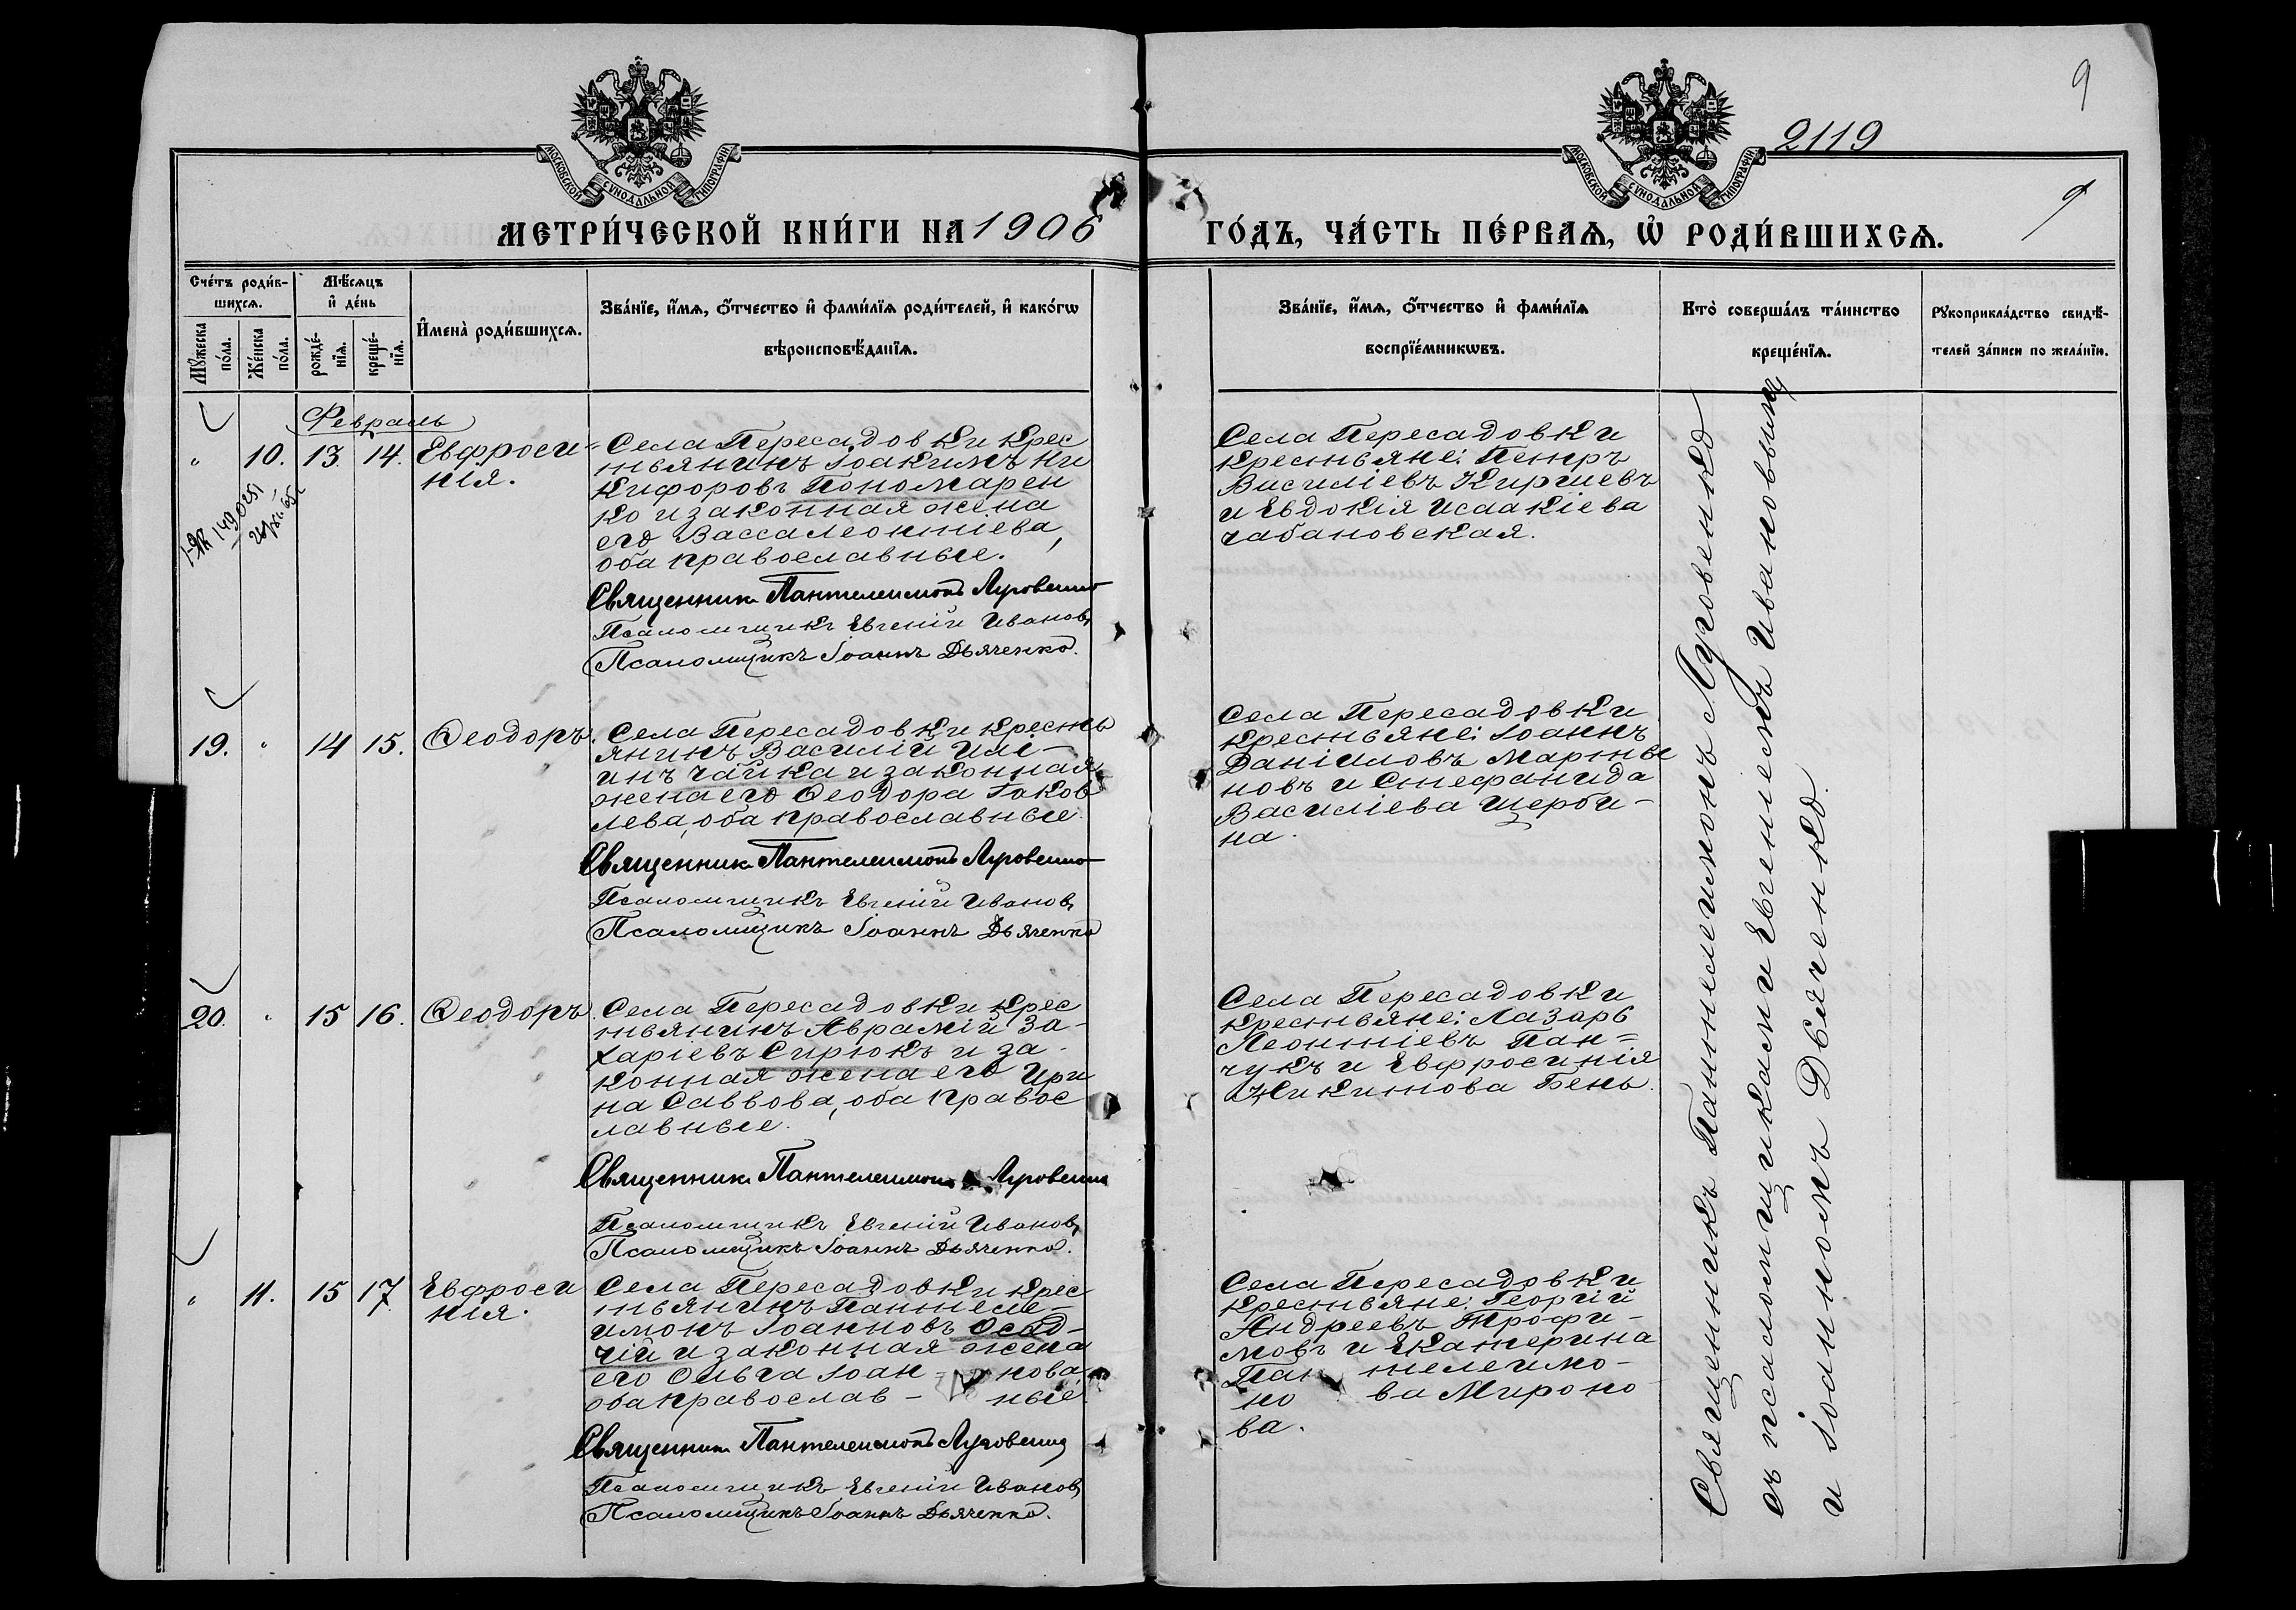 9
2119
9
МОСКОВСКОЙ СѴНОДАЛЬНОЙ ТИПОГРАФІИ
МОСКОВСКОЙ СѴНОДАЛЬНОЙ ТИПОГРАФІИ
МЕТРИ́ЧЕСКОЙ КНИ́ГИ НА 1906 ГО́ДЪ, ЧА́СТЬ ПЕ́РВАѦ, Ѡ҆ РОДИ́ВШИХСѦ.
Сче́тъ роди́в-
шихсѧ.
Мѣ́сѧцъ
и҆ де́нь
Мꙋ́жеска
по́ла.
Же́нска
по́ла.
рожде́-
нїѧ.
креще́-
нїѧ.
И҆мена̀ роди́вшихсѧ.
Зва́нїе, и҆́мѧ, ѻ҆́тчество и҆ фами́лїѧ роди́телей, и҆ како́гѡ
вѣроисповѣ́данїѧ.
Зва́нїе, и҆́мѧ, ѻ҆́тчество и҆ фами́лїѧ
воспрїе́мникѡвъ.
Кто̀ соверша́лъ та́инство
креще́нїѧ.
Рꙋкоприкла́дство свидѣ́-
телей за́писи по жела́нїю.
Февраль
" 10. 13. 14. Евфроси-
нія.
Села Пересадовки крес
тьянинъ Іоакимъ Ни
кифоровъ Пономарен
ко и законная жена
его Васса Леонтіева,
оба православные.
Священникъ Пантелеимонъ Луговенко
Псаломщикъ Евгеній Ивановъ
Псаломщикъ Іоаннъ Дьяченко.
Села Пересадовки
крестьяне: Петръ
Василіевъ Киршевъ
и Евдокія Исаакіева
Чабановская.
19. " 14 15. Ѳеодоръ.
Села Пересадовки кресть
янинъ Василій Илі-
инъ Чайка и законная
жена его Ѳеодора Іаков
лева, оба православные.
Священникъ Пантелеимонъ Луговенко
Псаломщикъ Евгеній Ивановъ
Псаломщикъ Іоаннъ Дьяченко
Села Пересадовки
крестьяне: Іоаннъ
Даніиловъ Мартые
новъ и Стефанида
Василіева Щерби-
на.
20. " 15 16. Ѳеодоръ.
Села Пересадовки крес
тьянинъ Аврамій За-
харіевъ Сирюкъ и за-
конная жена его Ири
на Саввова, оба правос
лавные.
Священникъ Пантелеимонъ Луговенко
Псаломщикъ Евгеній Ивановъ
Псаломщикъ Іоаннъ Дьяченко.
Села Пересадовки
крестьяне: Лазарь
Леонтіевъ Пан-
чукъ и Евфросинія
Никитова Бень.
" 11. 15 17. Евфроси
нія.
Села Пересадовки крес
тьянинъ Пантеле-
имонъ Іоанновъ Осад-
чій и законная жена
его Ольга Іоан-нова,
оба православ-ные.
Священникъ Пантелеимонъ Луговенко
Псаломщикъ Евгеній Ивановъ
Псаломщикъ Іоаннъ Дьяченко.
Села Пересадовки
крестьяне: Георгій
Андреевъ Трофи-
мовъ и Екатерина
Пантелеимо-
нова Мироно
ва.
Священникъ Пантелеимонъ Луговенко
съ псаломщиками Евгеніемъ Ивановымъ
и Іоанномъ Дьяченко.